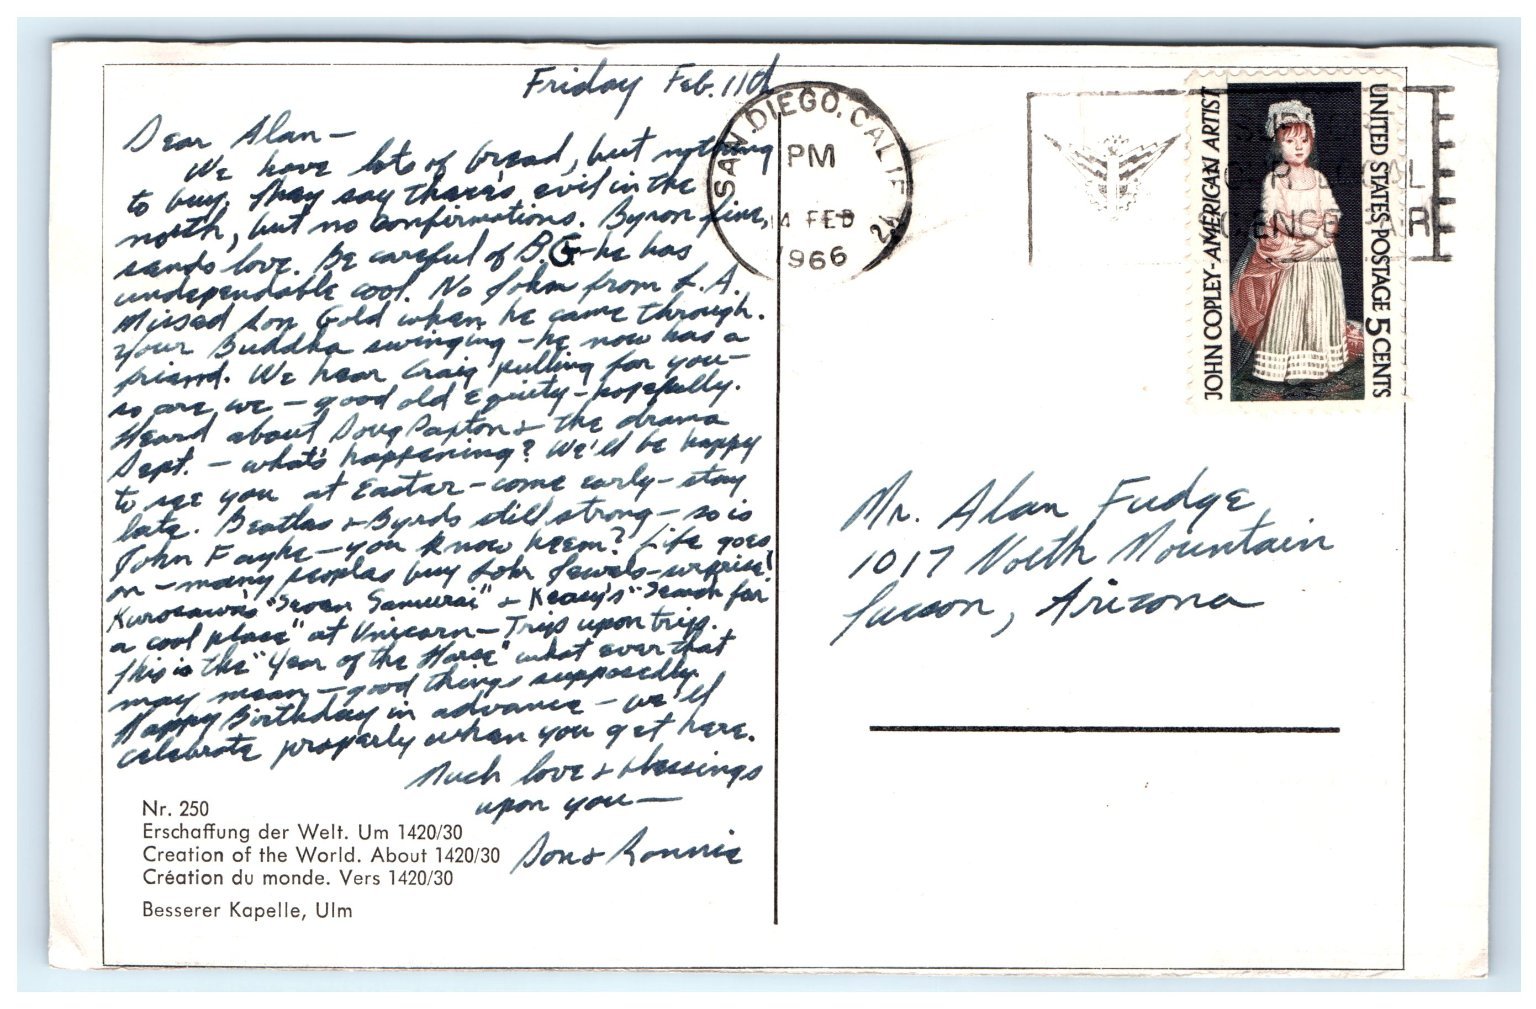 Friday Feb. 11th
Dear Alan –
We have lots of bread, but nothing
to buy. They say there's evil in the
north, but no confirmations. Byron fine,
sends love. Be careful of B.G. – he has
undependable cool. No John from L.A.
Missed Don Gold when he came through.
Your Buddha swinging – he now has a
friend. We hear Craig pulling for you –
so are we – good old Equity – hopefully.
Heard about Doug Paxton & the drama
Dept. – what's happening? We'll be happy
to see you at Easter – come early – stay
late. Beatles & Byrds still strong – so is
John Fayhe – you know heem? Life goes
on – many peoples buy Jewels – surprise!
Kurosawa's "Seven Samurai" & Keasy's "Search for
a cool place" at Unicorn – Trips upon trips.
This is the "Year of the Horse" what ever that
may mean – good things supposedly.
Happy Birthday in advance – we'll
celebrate properly when you get here.
Much love & blessings
upon you –
Don & Ronnie
Nr. 250
Erschaffung der Welt. Um 1420/30
Creation of the World. About 1420/30
Création du monde. Vers 1420/30
Besserer Kapelle, Ulm
SAN DIEGO, CALIF
PM
14 FEB
1966
LOCAL
SCIENCE FAIR
JOHN COPLEY-AMERICAN ARTIST
UNITED STATES-POSTAGE 5 CENTS
Mr. Alan Fudge
1017 North Mountain
Tucson, Arizona